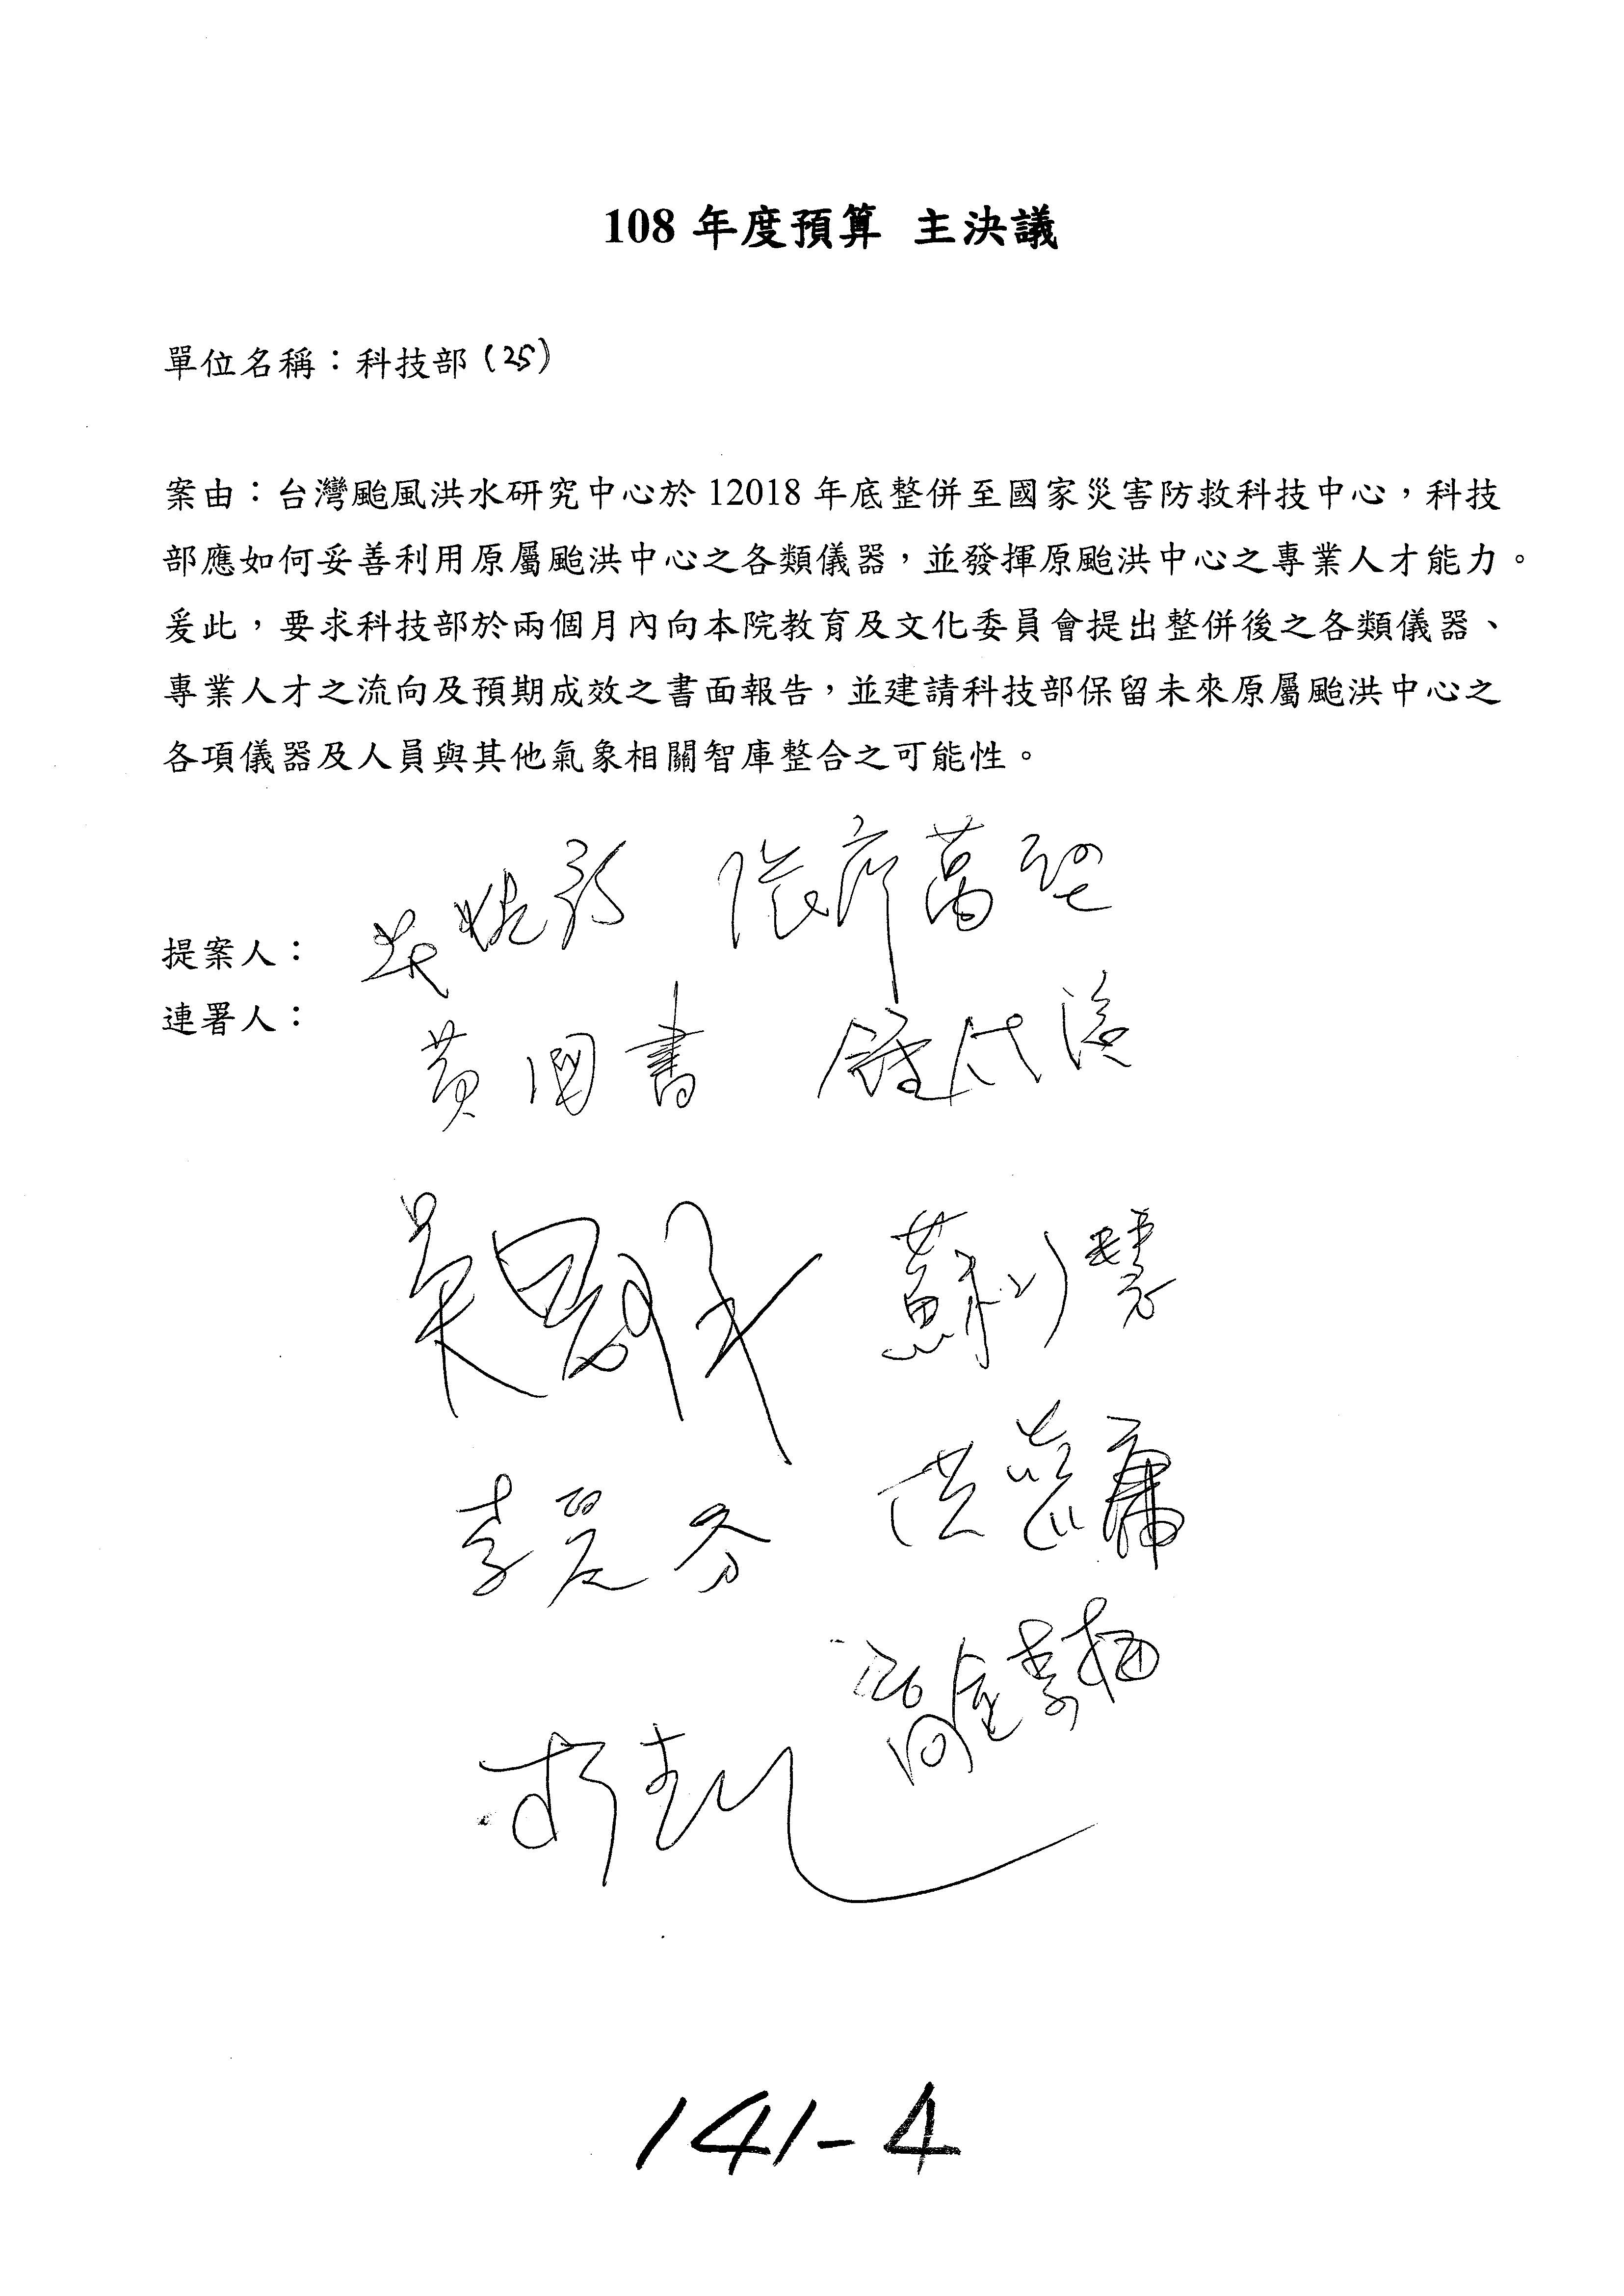 108 年度預算 主決議
單位名稱：科技部(25)
案由：台灣颱風洪水研究中心於 12018 年底整併至國家災害防救科技中心，科技
部應如何妥善利用原屬颱洪中心之各類儀器，並發揮原颱洪中心之專業人才能力。
爰此，要求科技部於兩個月內向本院教育及文化委員會提出整併後之各類儀器、
專業人才之流向及預期成效之書面報告，並建請科技部保留未來原屬颱洪中心之
各項儀器及人員與其他氣象相關智庫整合之可能性。
張廖萬堅
提案人：
連署人：
黃國書 鍾佳濱
吳思瑤 蘇巧慧
李麗芬 洪慈庸
141-4